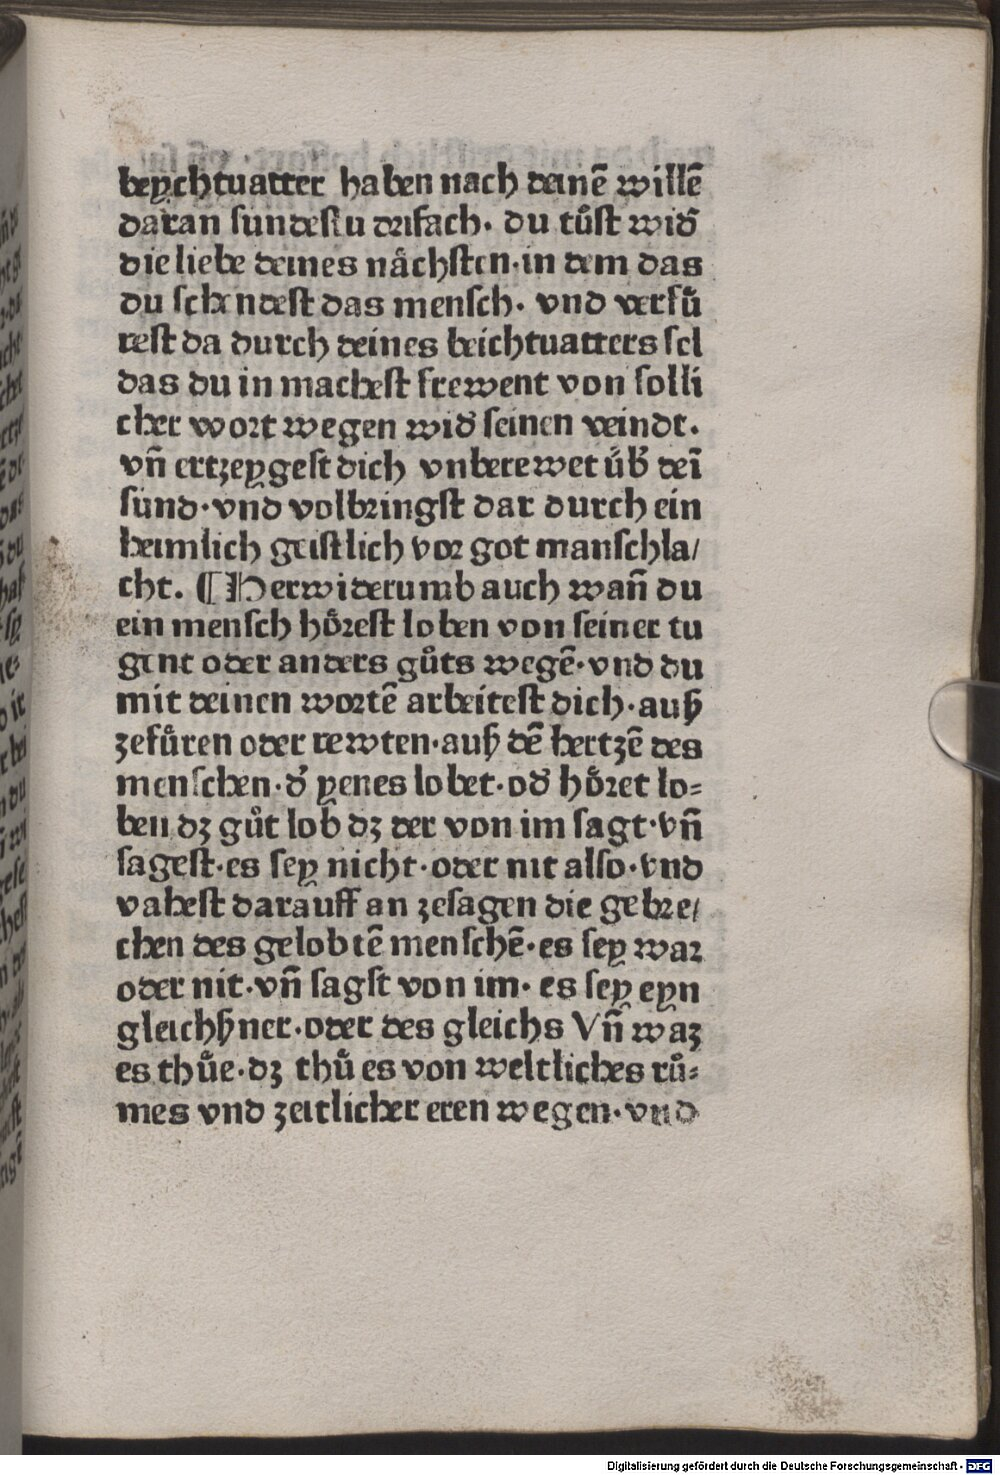 beychtuatter haben nach deinē willē
daran sundestu drifach. du tůst wid᷑
die liebe deines nächsten·in dem das
du schendest das mensch. vnd verfů
rest da durch deines beichtuatters sel
das du in machest frewent von solli
cher wort wegen wid᷑ seinen veindt.
vñ ertzeygest dich vnberewet úb᷑ deī
sünd·vnd volbringst dar durch ein
heimlich geistlich vor got manschla/
cht. ¶ Herwiderumb auch wañ du
ein mensch hôrest loben von seiner tu
gent oder anders gůts wegē·vnd du
mit deinen wortē arbeitest dich·auß
zefůren oder rewten·auß dē hertzē des
menschen·d᷑ yenes lobet·od᷑ hôret lo⸗
ben dz gůt lob dz der von im sagt·vñ
sagest·es sey nicht·oder nit also·vnd
vahest darauff an zesagen die gebre/
chen des gelobtē menschē·es sey war
oder nit·vñ sagst von im· es sey eyn
gleichßner·oder des gleichs Vñ waz
es thůe·dz thů es von weltliches rů⸗
mes vnd zeitlicher eren wegen·vnd
Digitalisierung gefördert durch die Deutsche Forschungsgemeinschaft - DFG